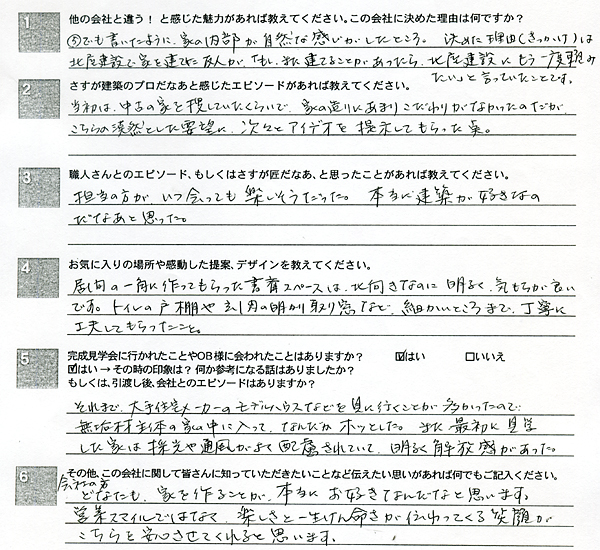 1 他の会社と違う! と感じた魅力があれば教えてください。この会社に決めた理由は何ですか?
⑤でも書いたように、家の内部が自然な感じがしたところ。 決めた理由(きっかけ)は
北庄建設で家を建てた友人が、「もし、また建てることがあったら、北庄建設にもう一度頼み
たい」と言っていたことです。
2 さすが建築のプロだなあと感じたエピソードがあれば教えてください。
当初は、中古の家を探していたくらいで、家の造りにあまりこだわりがなかったのだが、
こちらの漠然とした要望に、次々とアイデアを提示してもらった点。
3 職人さんとのエピソード、もしくはさすが匠だなあ、と思ったことがあれば教えてください。
担当の方が、いつ会っても楽しそうだった。 本当に建築が好きなの
だなあと思った。
4 お気に入りの場所や感動した提案、デザインを教えてください。
居間の一角に作ってもらった書斎スペースは、北向きなのに明るく、気もちが良い
です。トイレの戸棚や玄関の明かり取り窓など、細かいところまで、丁寧に
工夫してもらったこと。
5 完成見学会に行かれたことやOB様に会われたことはありますか? ☑はい □いいえ
☑はい → その時の印象は? 何か参考になる話はありましたか?
もしくは、引渡し後、会社とのエピソードはありますか?
それまで、大手住宅メーカーのモデルハウスなどを見に行くことが多かったので
無垢材主体の家の中に入って、なんだかホッとした。 また最初に見学
した家は採光や通風がよく配慮されていて、明るく解放感があった。
6 その他、この会社に関して皆さんに知っていただきたいことなど伝えたい思いがあれば何でもご記入ください。
会社の方
どなたも、家を作ることが、本当にお好きなんだなと思います。
営業スマイルではなく、楽しさと一生けん命さが伝わってくる笑顔が
こちらを安心させてくれると思います。